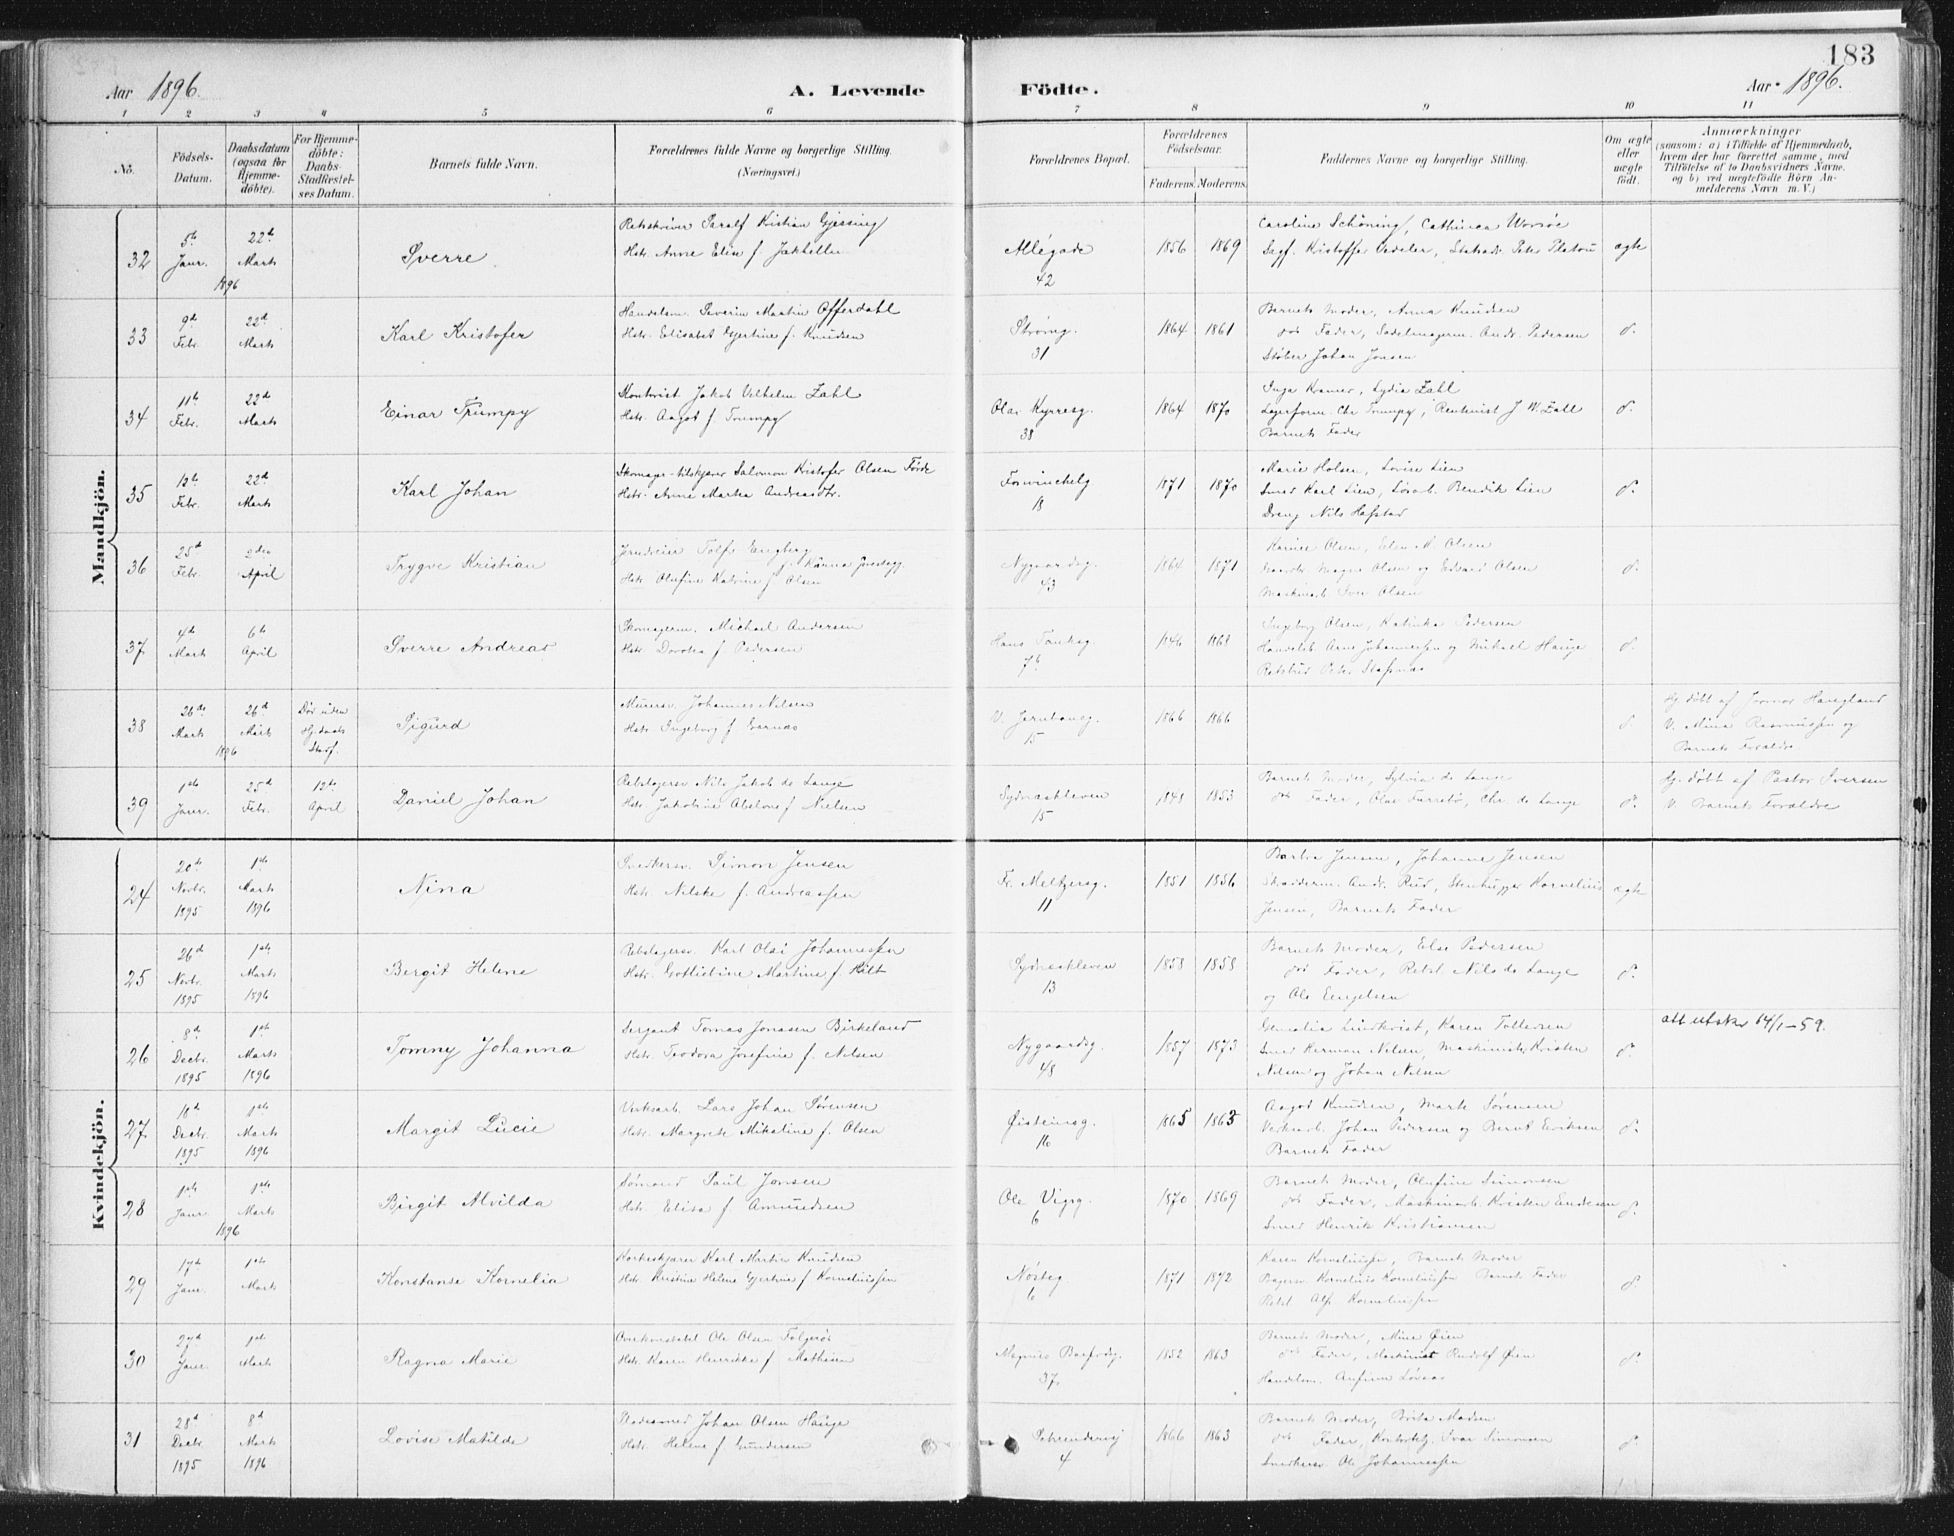 183
Aar 1896.
A. Levende Födte.
Aar 1896.
1 2 3 4 5 6 7 8 9 10 11
No.
Födsels-Datum.
Daabsdatum (ogsaa för Hjemmedöbte).
For Hjemmedöbte: Daabs Stadfæstelses Datum.
Barnets fulde Navn.
Forældrenes fulde Navne og borgerlige Stilling.
(Næringsvei.)
Forældrenes Bopæl.
Forældrenes Födselsaar.
Faderens. Moderens.
Faddernes Navne og borgerlige Stilling.
Om ægte eller uægte födt.
Anmærkninger
(saasom: a) i Tilfælde af Hjemmedaab,
hvem der har forrettet samme, med
Tilföielse af to Daabsvidners Navne.
og b) ved uægtefödte Börn Anmelderens Navn m. V.)
Mandkjön.
32 5te Janr. 22de Marts 1896 Sverre
Hstr. Anne Elise f.
Allégade 42 1856 1869
Caroline Schöning, Cathinca Worsöe
Sagf. Kristoffer Vedeler, Peter Platou
ægte
33 9d Febr. 22d Marts Karl Kristofer
Handelsm. Severin Martin Offerdahl
Hstr. Elisabet Gjertine f. Knudsen
Strømg. 31 1864 1861
Barnets Moder, Anna Knudsen
Fader, Sadelmagerm. Andr. Pedersen
Johan Jonsen
34 11te Febr. 22d Marts Einar Trumpy
Kontorist Jakob Vilhelm Zahl
Hstr. Aagot f. Trumpy
Olai Kyrresg. 38 1864 1870
Inga Kramer, Lydia Zahl
Chr Trumpy, J. W. Zall
Barnets Fader
35 Febr. 22d Marts Karl Johan
Salomon Kristofer Olsen Förde
Hstr. Anne Marta Andreasdtr.
18 1871 1870
Marie Holsen, Lovise Lien
Smed Karl Lien, Bendik Lien
Dreng Nils Hafstad
36 25d Febr. April Trygve Kristian
Hstr. Olufine Katrine f. Olsen
Nygaardsg. 43 1864 1871
Olsen, M. Olsen
Magnus Olsen og Edvard Olsen
Maskinarb. Iver Olsen
37 4de Marts 6te April Sverre Andreas
Skomagerm. Michael Andersen
Hstr. Dorotea f Pedersen
Hans Tanksg 1846 1868
Ingeborg Olsen, Katinka Pedersen
Arne Johannessen og Mikael Hauge
38 26de Marts 26d Marts 1896 Död uden Hj. daabs Stadf. Sigurd
Murersv. Johannes Nilsen
Hstr. Ingeborg f
V. Jernbaneg. 15 1866 1866
Hj. döbt af Jormor Haugland
V. Mina Rasmussen og
Barnets Forældre
39 1ste Janr. 25d Febr. 12te April Daniel Johan
Rebslagersv. Nils Jakob de Lange
Hstr. Jakobine Abelone f Nielsen
Sydneskleven 15 1848 1853
Barnets Moder, Sylvia de Lange
Fader, Olai Furrebö, Chr. de Lange
Hj. döbt af Pastor Iversen
V. Barnets Forældre
Kvindekjön.
24 20de Novbr. 1895 1ste Marts 1896 Nina
Snedkersv. Simon Jensen
Hstr. Nilske f. Andreassen
Fr. Meltzersg. 11 1851 1856
Berta Jensen, Johanne Jensen
Skrædderm. Andr. Rud, Stenhugger Kornelius
Jensen, Barnets Fader
ægte
25 26d Novbr. 1895 1ste Marts 1896 Bergit Helene
Rebslagersv. Karl Olai Johannessen
Hstr. Gottlibine Martine f. Hilt
Sydneskleven 13 1858 1858
Barnets Moder, Else Pedersen
Fader, Rebsl. Nils de Lange
og Ole Engelsen
26 8d Decbr. 1895 1ste Marts 1896 Tomny Johanna
Sergant Tomas Jonasen Birkeland
Hstr. Teodora Josefine f. Nilsen
Nygaardsg. 48 1857 1873
Lindkvist, Karen Tollersen
Smed Herman Nilsen, Maskinist Kristen
Nilsen og Johan Nilsen
att utskr 14/1-59.
27 18d Decbr. 1895 1ste Marts 1896 Margit Lucie
Verksarb. Lars Johan Sörensen
Hstr. Margrete Mikaline f. Olsen
Øisteinsg. 16 1865 1863
Aagot Knudsen, Marte Sörensen
Verksarb. Johan Pedersen og Bernt Eriksen
Barnets Fader
28 1ste Janr. 1ste Marts 1896 Birgit Alvilda
Sömand Paul Jansen
Hstr. Elisa f Amundsen
Ole Vigsg. 6 1870 1869
Barnets Moder, Olufine Simonsen
Fader, Maskinarb. Kristen Endresen
Smed Henrik Kristiansen
29 17d Janr. 1ste Marts Konstanse Kornelia
Korkeskjærer Karl Martin Knudsen
Hstr. Kristine Helene Gjertine f Korneliussen
Nösteg. 6 1871 1872
Karen Korneliussen, Barnets Moder
Bagersv. Kornelius Korneliussen Barnets Fader
Alf Korneliussen
30 27d Janr. 1ste Marts Ragna Marie
Overkonstabel Ole Olsen
Hstr. Karen Henrikke f Mathisen
Magnus Barfodsg. 37 1852 1863
Barnets Moder, Mina Øien
Fader, Maskinist Rudolf Øien
Handelsm. Anfinn
31 28d Decbr. 1895 8d Marts 1896 Lovise Matilde
Johan Olsen Hauge
Hstr. Helene f Gundersen
4 1866 1863
Barnets Moder, Brita Madsen
Fader, Ivar Simonsen
Snedkersv. Ole Johannessen